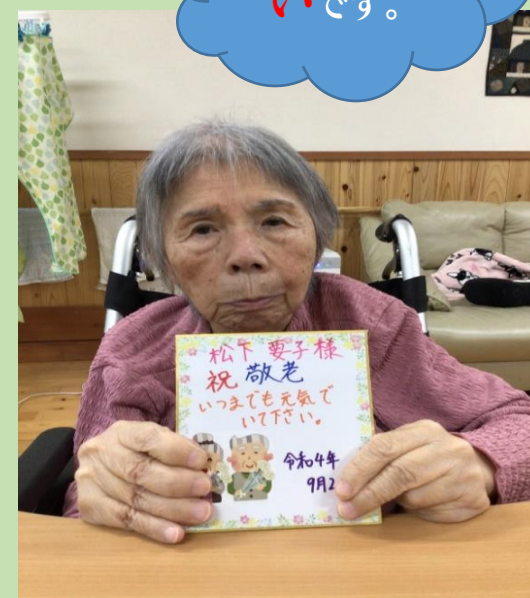 いです。
松下 要子様
祝 敬老
いつまでも元気で
いて下さい。
令和4年
9月2